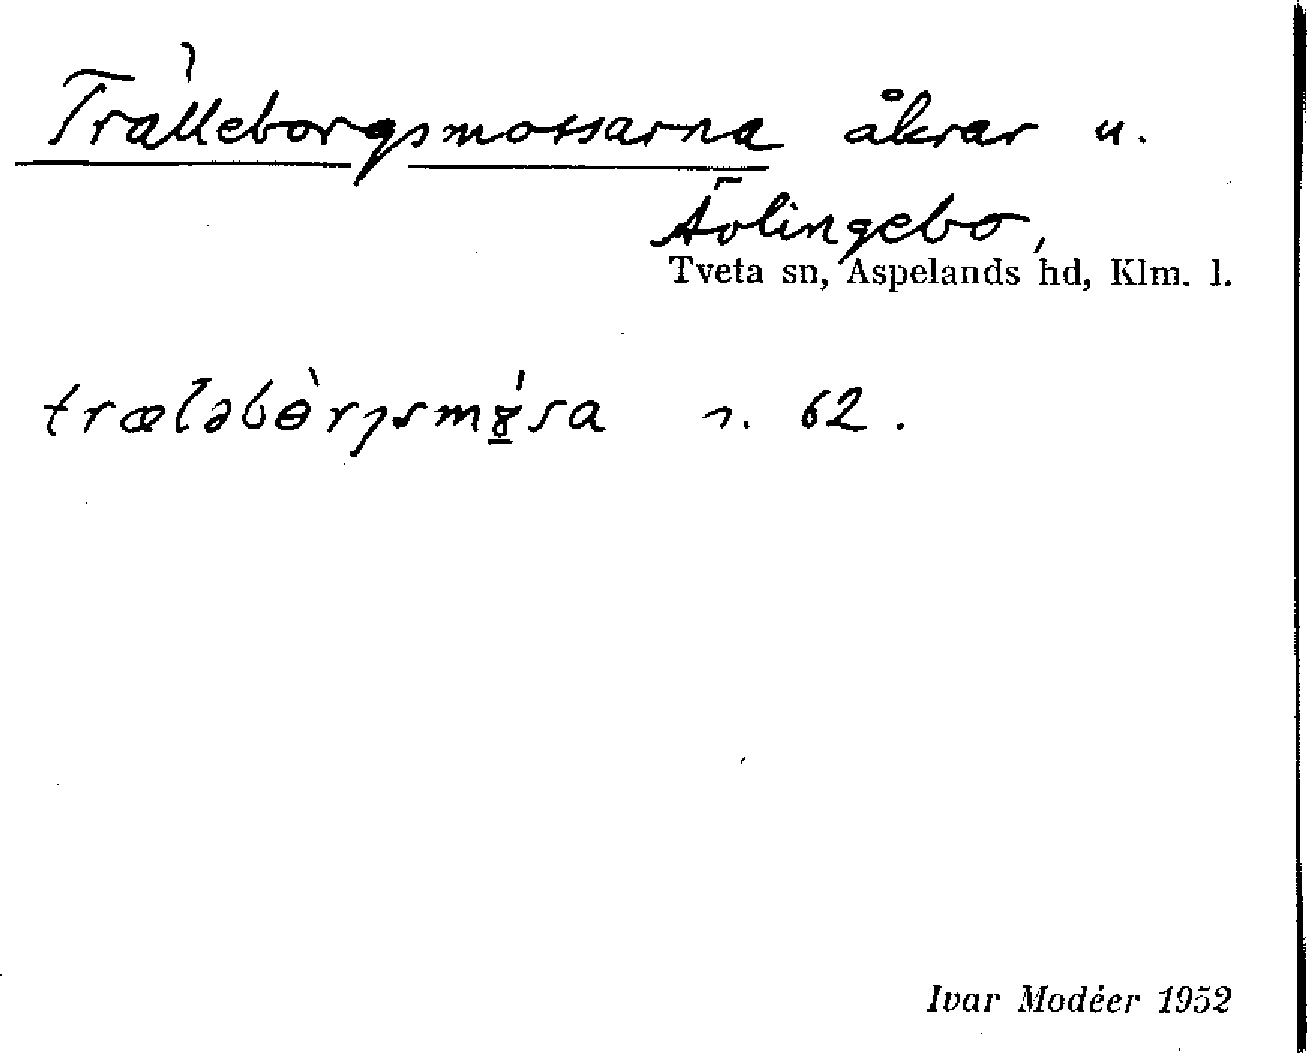 Trälleborgsmossarna åkrar u.
Ävlingebo,
Tveta sn, Aspelands hd, Klm. l.
træləbɵ̀rȷsmɣ̲́sa n. 62.
Ivar Modéer 1952